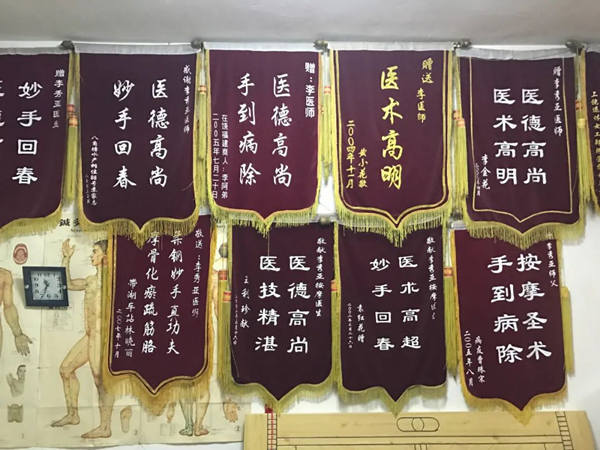 赠李秀亚医生
妙手回春
感谢李秀亚医师
医德高尚
妙手回春
赠：李医师
医德高尚
手到病除
在饶福建商人：李阿弟
二00五年七月二十日
赠送李医师
医术高明
黄小花敬
二00四年十一月
赠李秀亚医师
医德高尚
医术高明
李金花
敬送：李秀亚医师
柔钢妙手真功夫
化瘀疏筋胳
带湖车站林晓丽
二00七年十月
敬献李秀亚按摩医生
医德高尚
医技精湛
王利珍献
敬献李秀亚按摩医生
医术高超
妙手回春
袁红花赠
李秀亚师父
按摩圣术
手到病除
病友曹珠宗
二00五年八月